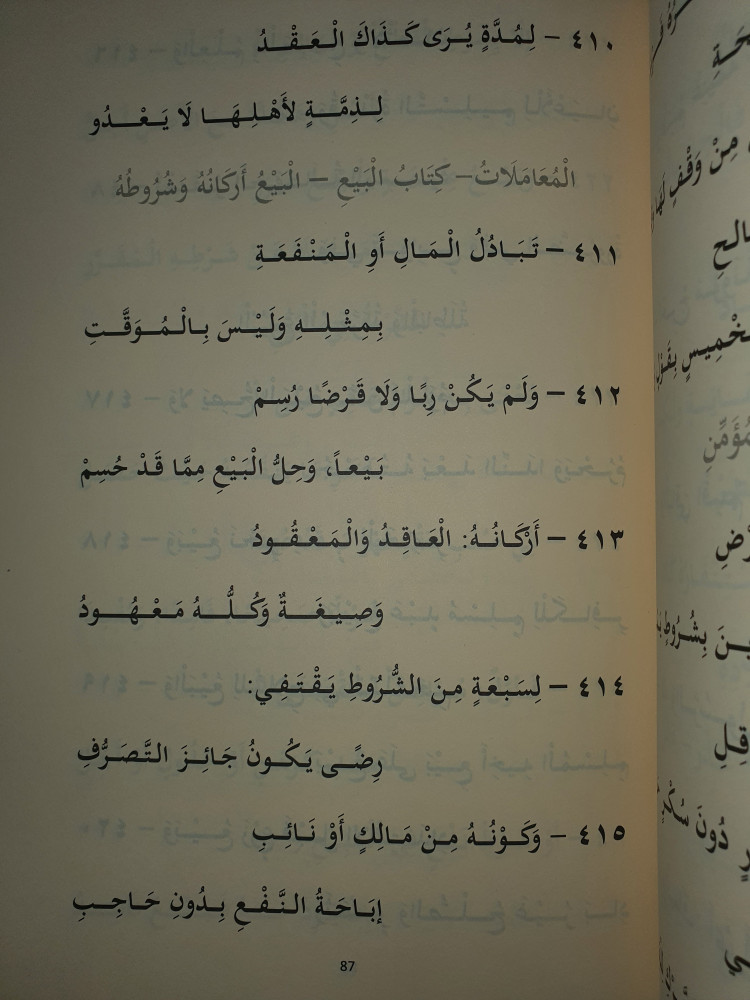 ٤١٠ – لِمُدَّةٍ يُرَى كَذَاكَ الْعَقْدُ
لِذِمَّةٍ لأَهْلِهَا لَا يَعْدُو
الْمُعَامَلَاتُ – كِتَابُ الْبَيْعِ – الْبَيْعُ أَرْكَانُهُ وَشُرُوطُهُ
٤١١ – تَبَادُلُ الْمَالِ أَوِ الْمَنْفَعَةِ
بِمِثْلِهِ وَلَيْسَ بِالْمُوَقَّتِ
٤١٢ – وَلَمْ يَكُنْ رِبًا وَلَا قَرْضًا رُسِمْ
بَيْعاً، وَحِلُّ الْبَيْعِ مِمَّا قَدْ حُسِمْ
٤١٣ – أَرْكَانُهُ: الْعَاقِدُ وَالْمَعْقُودُ
وَصِيغَةٌ وَكُلُّهُ مَعْهُودُ
٤١٤ – لِسَبْعَةٍ مِنَ الشُّرُوطِ يَقْتَفِي:
رِضًى يَكُونُ جَائِزَ التَّصَرُّفِ
٤١٥ – وَكَوْنُهُ مِنْ مَالِكٍ أَوْ نَائِبِ
إبَاحَةُ النَّفْعِ بِدُونِ حَاجِبِ
87
مِنْ وَقْفٍ
بِشُرُوطِ
دُونَ